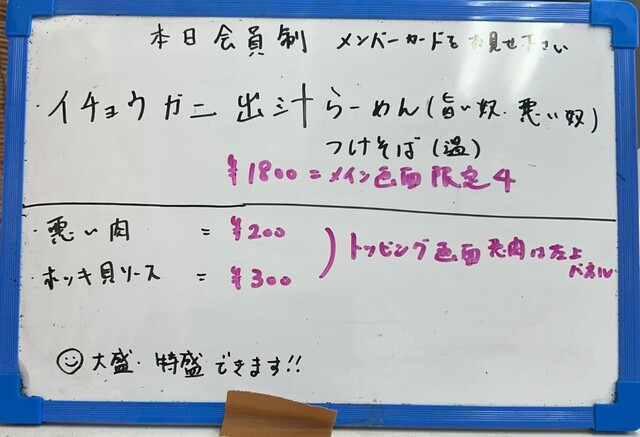 本日会員制 メンバーカードをお見せ下さい
・イチョウガニ出汁らーめん(旨い奴・悪い奴)
つけそば(温)
¥1800=メイン画面限定4
・悪い肉 = ¥200
・ホッキ貝ソース = ¥300
)トッピング画面 悪肉は左上
パネル
☺大盛・特盛できます!!